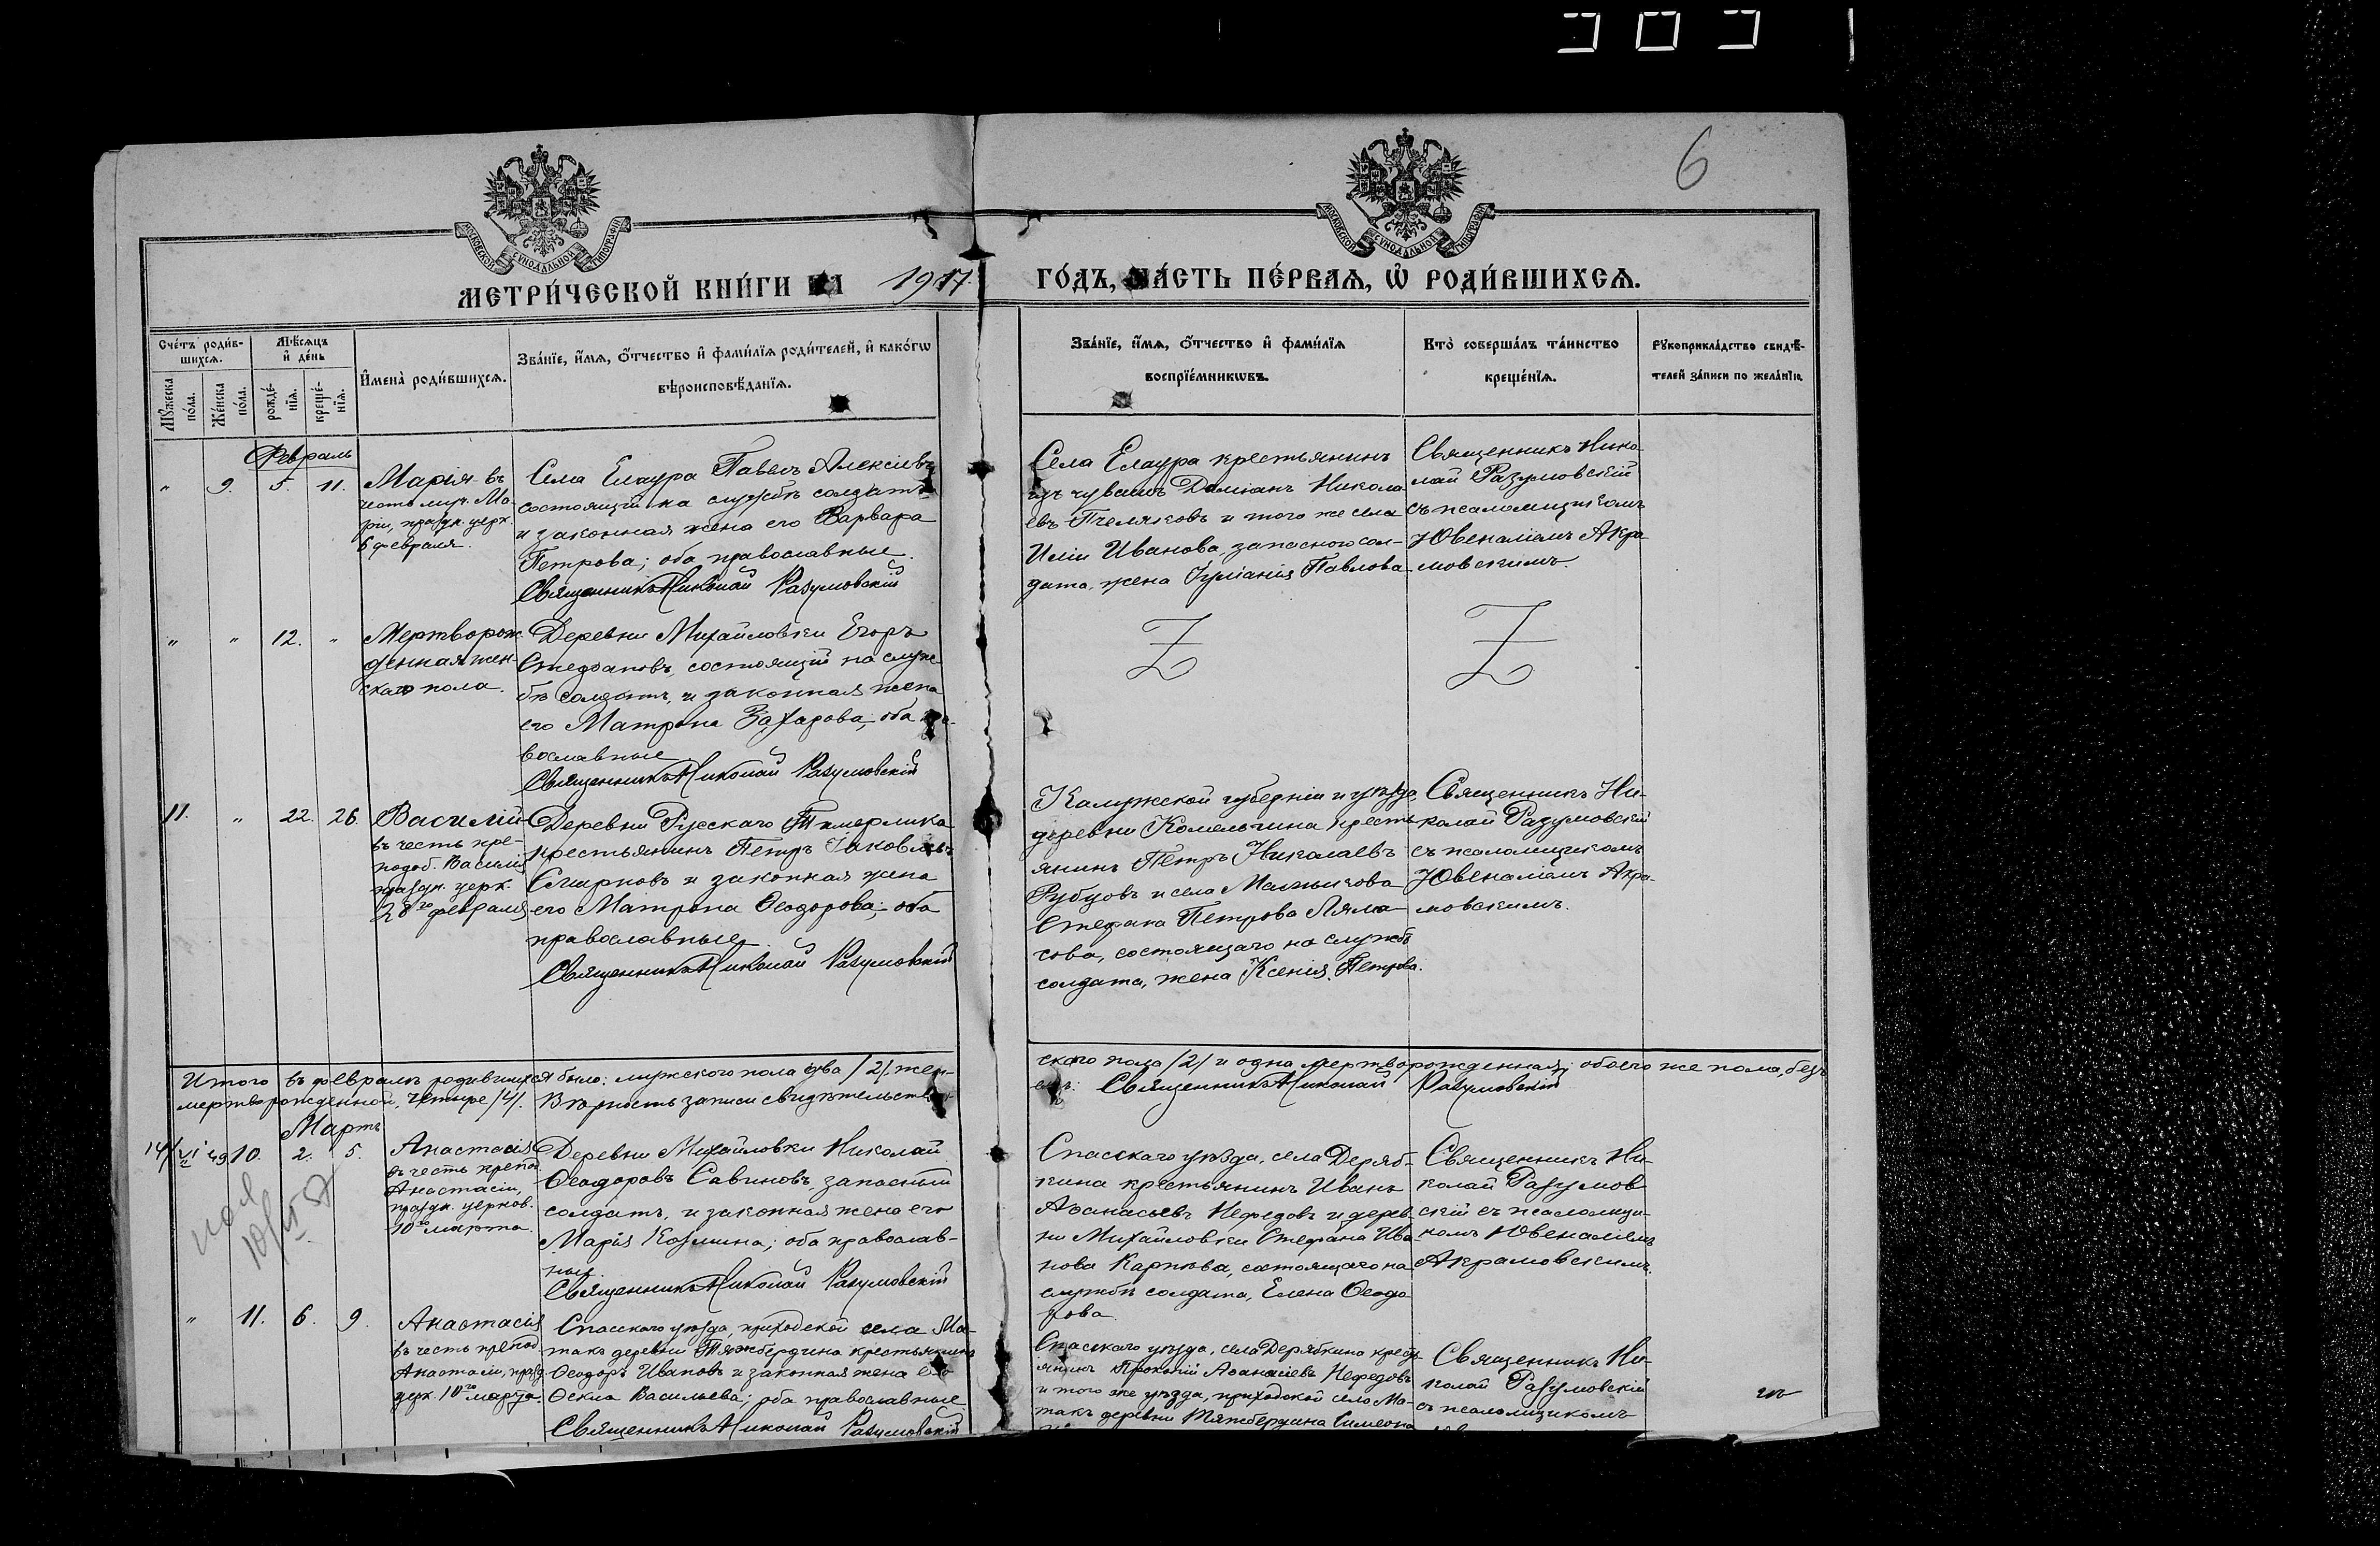 6
МОСКОВСКОЙ СѴНОДАЛЬНОЙ ТИПОГРАФІИ
МОСКОВСКОЙ СѴНОДАЛЬНОЙ ТИПОГРАФІИ
МЕТРИ́ЧЕСКОЙ КНИ́ГИ НА 1917. ГО́ДЪ, ЧА́СТЬ ПЕ́РВАѦ, Ѡ҆ РОДИ́ВШИХСѦ.
Сче́тъ роди́в-
шихсѧ.
Мꙋ́жеска
по́ла.
Же́нска
по́ла.
Мѣ́сѧцъ
и҆ де́нь
рожде́-
нїѧ.
креще́-
нїѧ.
И҆мена̀ роди́вшихсѧ.
Зва́нїе, и҆́мѧ, ѻ҆́тчество и҆ фами́лїѧ роди́телей, и҆ како́гѡ
вѣроисповѣ́данїѧ.
Зва́нїе, и҆́мѧ, ѻ҆́тчество и҆ фами́лїѧ
воспрїе́мникѡвъ.
Кто̀ соверша́лъ та́инство
креще́нїѧ.
Рꙋкоприкла́дство свидѣ́-
телей за́писи по жела́нїю.
Февраль
" 9. 5. 11.
Марія въ
честь мц. Ма-
ріи, праздн. церк.
6 февраля.
Села Елаура Павелъ Алексіевъ
состоящій на службѣ солдатъ
и законная жена его Варвара
Петрова; оба православные.
Священникъ Николай Разумовскій
Села Елаура крестьянинъ
изъ чувашъ Даміанъ Никола-
евъ Пчеляковъ и того же села
Иліи Иванова, запаснаго сол-
дата, жена Іуліанія Павлова
Священникъ Нико-
лай Разумовскій
съ псаломщикомъ
Ювеналіемъ Акра-
мовскимъ
" " 12. "
Мертворож-
денная жен-
скаго пола.
Деревни Михайловки Егоръ
Стефановъ, состоящій на служ-
бѣ солдатъ, и законная жена
его Матрона Захарова; оба пра-
вославные
Священникъ Николай Разумовскій
Z
Z
11. " 22. 26.
Василій
въ честь пре-
подоб. Василія
праздн. церк.
28го февраля
Деревни Русскаго Тимерлика
крестьянинъ Петръ Іаковлевъ
Смирновъ и законная жена
его Матрона Ѳеодорова; оба
православные.
Священникъ Николай Разумовскій
Калужской губерніи и уѣзда,
деревни Комельгина кресть-
янинъ Петръ Николаевъ
Рубцовъ и села
Стефана Петрова Ляма-
сова, состоящаго на службѣ
солдата, жена Ксенія Петрова.
Священникъ Ни-
колай Разумовскій
съ псаломщикомъ
Ювеналіемъ Акра-
мовскимъ.
Итого въ февралѣ родившихся было: мужского пола два /2/, жен-
мертворожденной, четыре /4/. Вѣрность записи свидѣтельству-
скаго пола /2/ и одна мертворожденная; обоего же пола, безъ
емъ: Священникъ Николай Разумовскій
Мартъ
14/VI 49 10. 2. 5.
Анастасія
въ честь препод.
Анастасіи,
праздн. церков.
10го марта.
Деревни Михайловки Николай
Ѳеодоровъ Савиновъ, запасный
солдатъ, и законная жена его
Марія Козмина; оба православ-
ные.
Священникъ Николай Разумовскій
Спасскаго уѣзда, села Деряб-
кина крестьянинъ Иванъ
Аѳанасьевъ Нефедовъ и дерев-
ни Михайловки Стефана Ива-
нова Карпова, состоящаго на
службѣ солдата, Елена Ѳеодо-
рова.
Священникъ Ни-
колай Разумов-
скій съ псаломщи-
комъ Ювеналіемъ
Акрамовскимъ.
" 11. 6. 9.
Анастасія
въ честь препод.
Анастасіи, празд.
церк. 10го марта.
Спасскаго уѣзда, приходской села Ма-
такъ деревни Тяжбердина крестьянинъ
Ѳеодоръ Ивановъ и законная жена его
Ѳекла Васильева; оба православные.
Священникъ Николай Разумовскій
Спасскаго уѣзда, села Дерябкина кресть-
янинъ Прокопій Аѳанасіевъ Нефедовъ
и того же уѣзда, приходской села Ма-
такъ деревни Тяжбердина Симеона
Священникъ Ни-
колай Разумовскій
съ псаломщикомъ